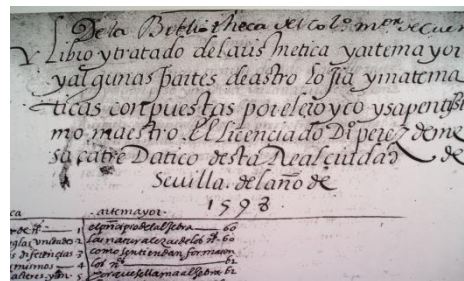 De la Bibliotheca del Colº mor de Cuen
Libro y tratado del arismetica y arte mayor
y algunas partes de astrolojia y matema
ticas compuestas por el
mo maestro. El Licenciado Dº perez de me
sa catredatico desta Real ciudad de
Sevilla. del año de
1598
ca . arte mayor .
1 el prinçipio del alsebra 60
2 las naturalezas de los nº. 60
3 como se entiendan
4 los nº 61
5 por que se llama alsebra 62